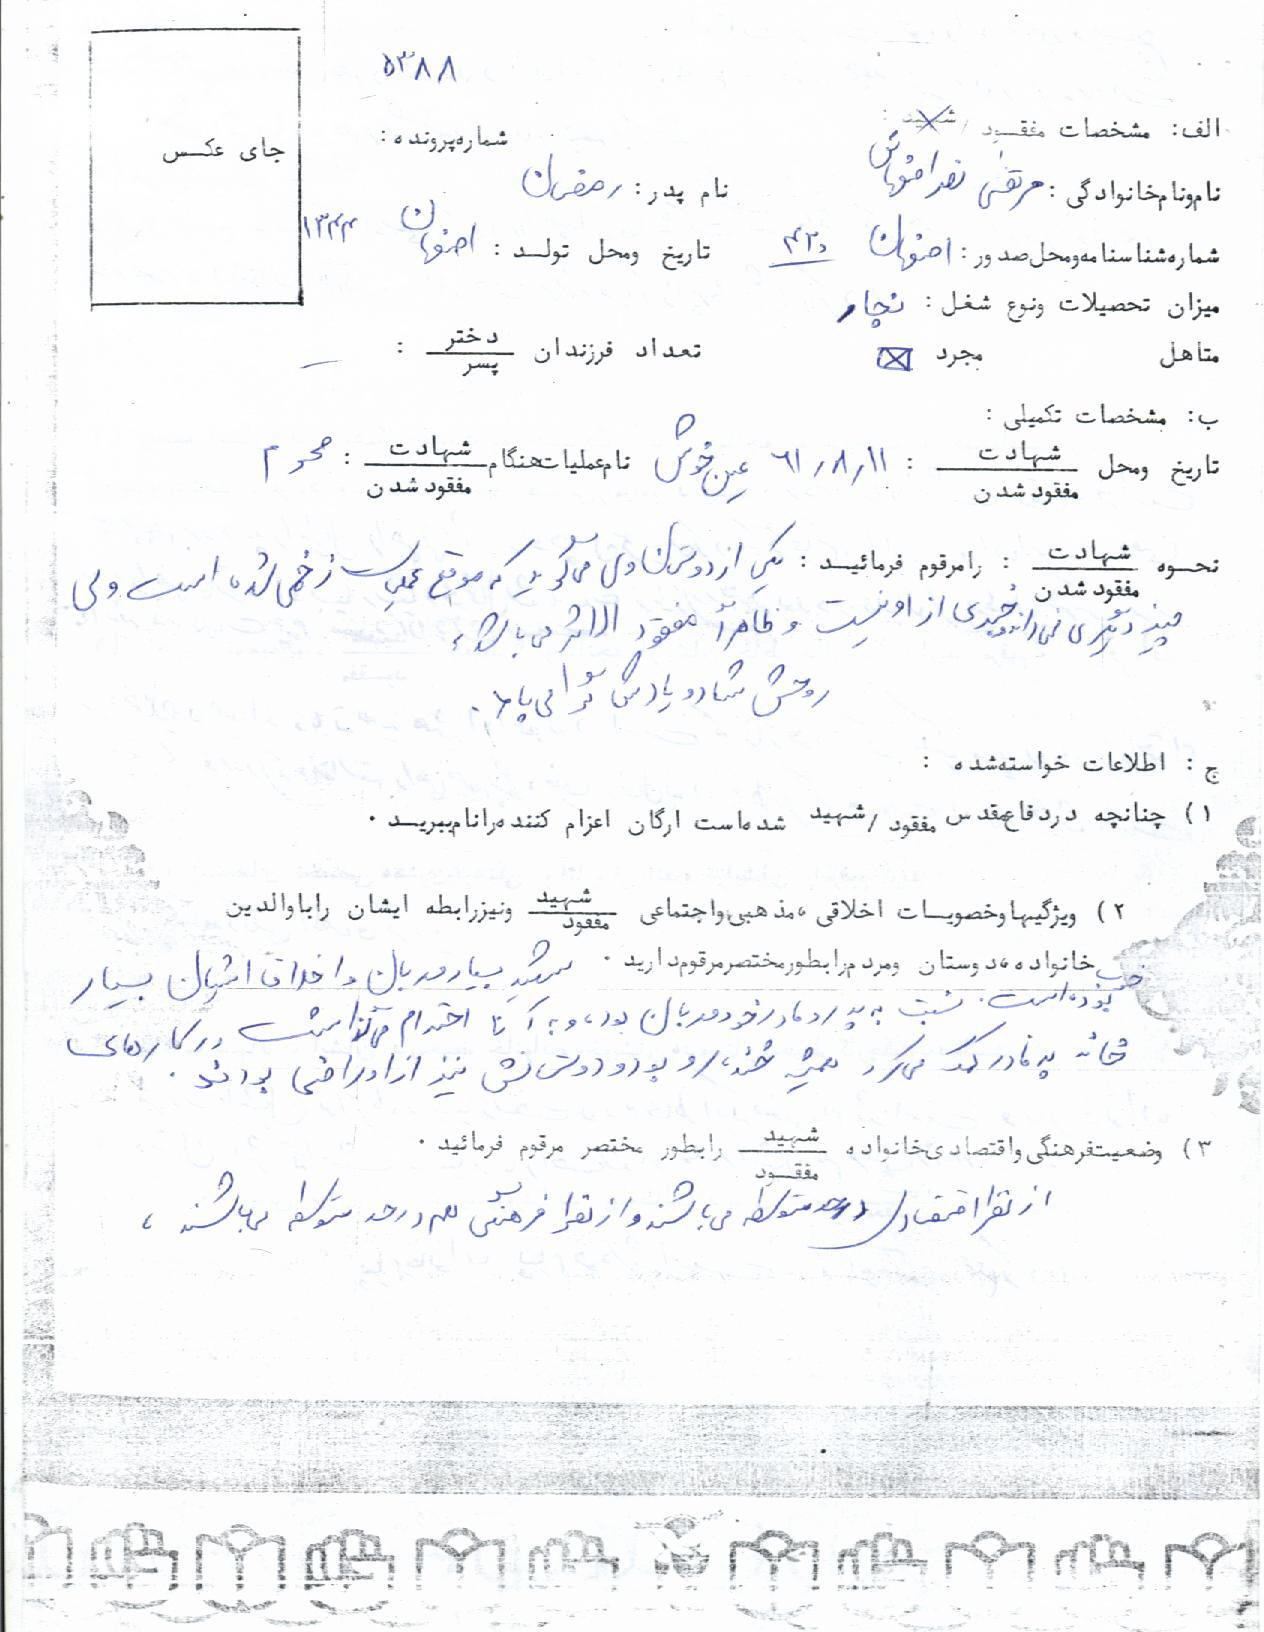 ۵۳۸۸
جای عکس
الف: مشخصات مفقود / شهید:
شماره پرونده:
نام و نام خانوادگی: مرتضی نصر اصفهانی
نام پدر: رمضان
شماره شناسنامه و محل صدور: اصفهان ۴۳۰
تاریخ و محل تولد: اصفهان ۱۳۴۴
میزان تحصیلات و نوع شغل: نجار
متاهل مجرد ☒ تعداد فرزندان دختر / پسر : –
ب: مشخصات تکمیلی:
تاریخ و محل شهادت / مفقود شدن : ۶۱٫۸٫۱۱ عین خوش نام عملیات هنگام شهادت / مفقود شدن : محرم
نحوه شهادت / مفقود شدن : را مرقوم فرمائید: یکی از دوستان وی می گوید که موقع عملیات زخمی شده است ولی
چیز دیگری نمی داند و خبری از او نیست و ظاهراً مفقود الاثر می باشد،
روحش شاد و یادش گرامی باد.
ج: اطلاعات خواسته شده :
۱) چنانچه در دفاع مقدس مفقود / شهید شده است ارگان اعزام کننده را نام ببرید.
۲) ویژگیها و خصوصیات اخلاقی، مذهبی و اجتماعی شهید / مفقود و نیز رابطه ایشان را با والدین
خانواده، دوستان و مردم را بطور مختصر مرقوم دارید. شهید بسیار مهربان و اخلاق ایشان بسیار خوب
بوده است. نسبت به پدر و مادر خود مهربان بود، و به آنها احترام می گذاشت در کارهای
خانه به مادر کمک می کرد همیشه خنده رو بود و دوستانش نیز از او راضی بودند.
۳) وضعیت فرهنگی و اقتصادی خانواده شهید / مفقود را بطور مختصر مرقوم فرمائید.
از نظر اقتصادی در حد متوسط می باشند و از نظر فرهنگی هم در حد متوسط می باشند،